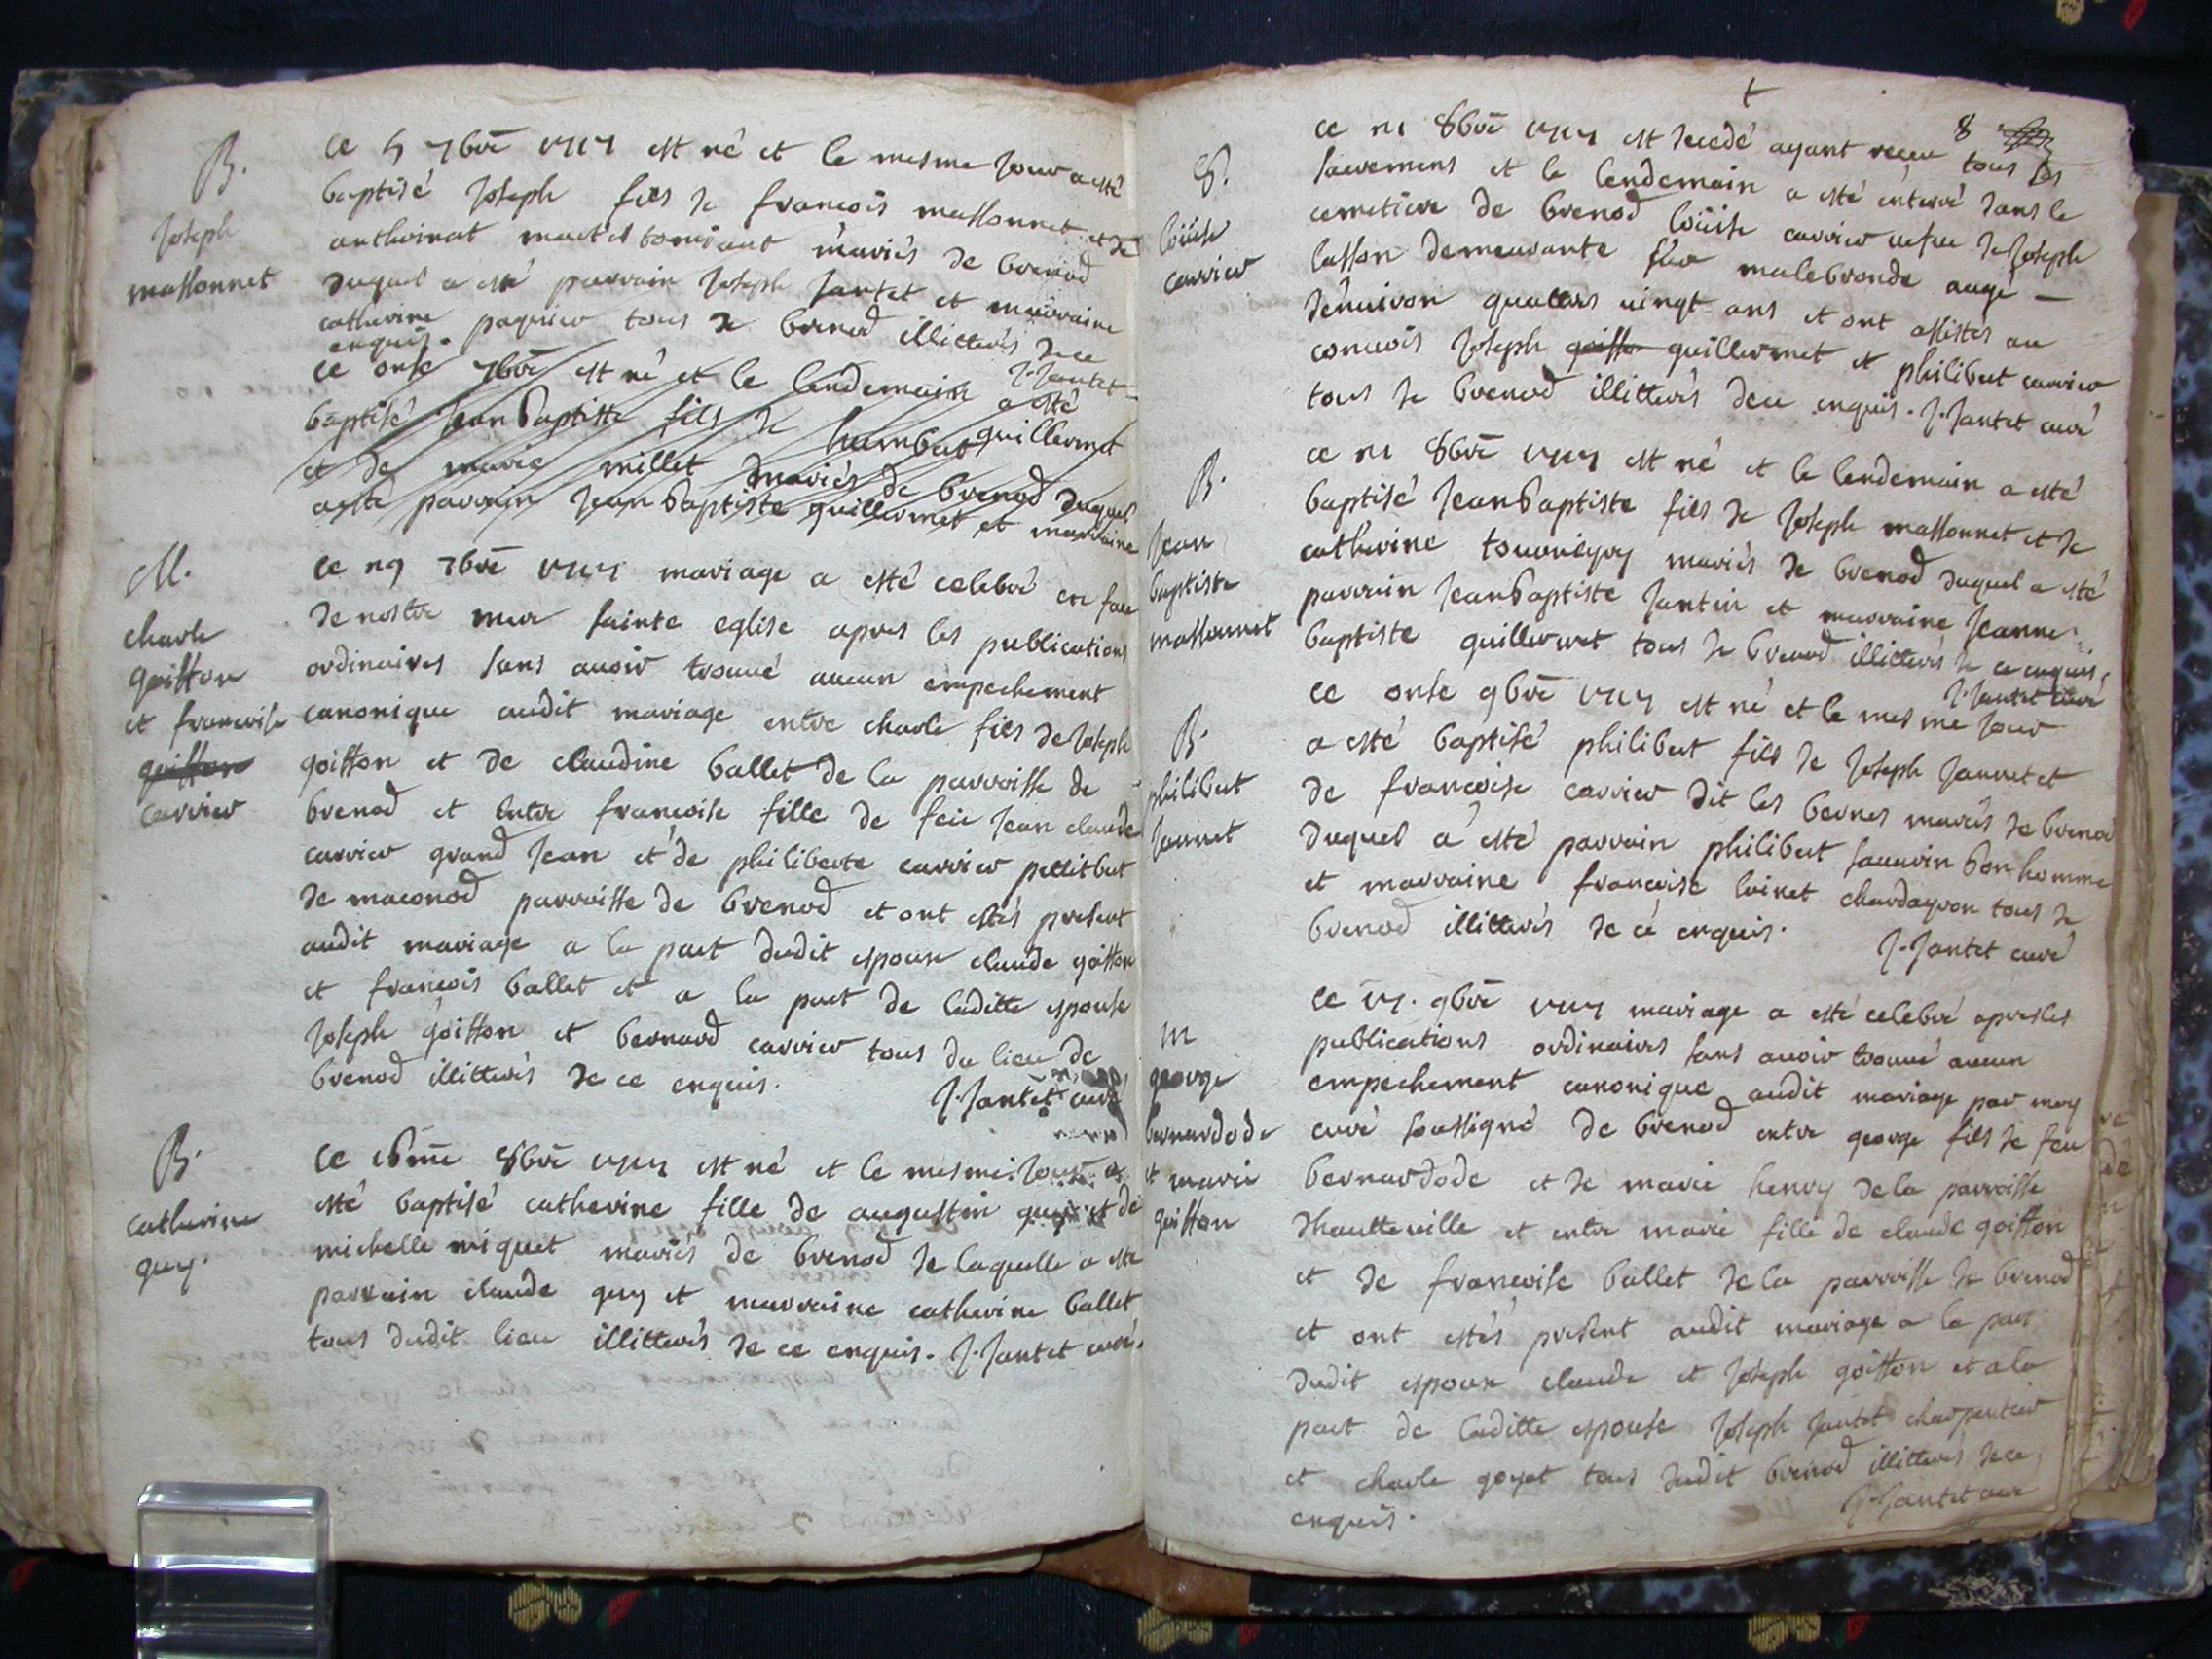 B.
Joseph
massonnet
ce 5 7bre 1715 est né et le mesme Jour a esté
baptisé Joseph fils de francois massonnet et de
duquel a esté parrain Joseph Jantet et marraine
catherine tous de brenod illitterés de ce
enquis. J. Jantet
ce onse 7bre est né et le lendemain a esté
baptisé Jean baptiste fils de humbert guillermet
et de marie millet mariés de brenod duquel
a esté parrain Jean baptiste guillermet et marraine
M.
charle
goiffon
et francoise
goiffon
carrier
ce 7bre 1715 mariage a esté celebré en face
de nostre mere sainte eglise apres les publications
ordinaires sans auoir trouué aucun empechement
canonique audit mariage entre charle fils de Joseph
goiffon et de claudine ballet de la parroisse de
brenod et entre francoise fille de feu Jean claude
carrier grand Jean et de philiberte carrier
de maconod parroisse de brenod et ont estés present
audit mariage a la part dudit espoux claude goiffon
et francois ballet et a la part de laditte espouse
Joseph goiffon et bernard carrier tous du lieu de
brenod illitterés de ce enquis.
J. Jantet curé
B.
catherine
guy.
ce 8bre 1715 est né et le mesme Jour a
esté baptisé catherine fille de augustin guy et de
michelle miquet mariés de brenod de laquelle a esté
parrain claude guy et marraine catherine ballet
tous dudit lieu illitterés de ce enquis. J. Jantet curé.
8
S.
loüise
carrier
ce 8bre 1715 est decedé ayant receu tous les
sacremens et le lendemain a esté enterré dans le
cemetiere de brenod loüise carrier uefue de Joseph
lasson demeurante sur malebronde augé
denuiron quattres uingt ans et ont assistes au
conuois Joseph goiffon guillermet et philibert carrier
tous de brenod illitterés de ce enquis. J. Jantet curé
B.
Jean
baptiste
massonnet
ce 8bre 1715 est né et le lendemain a esté
baptisé Jean baptiste fils de Joseph massonnet et de
catherine mariés de brenod duquel a esté
parrain Jean baptiste et marraine Jeanne
baptiste guillermet tous de brenod illitterés de ce enquis.
J. Jantet curé
B.
philibert
Jannet
ce onse 9bre 1715 est né et le mesme Jour
a esté baptisé philibert fils de Joseph Jannet et
de francoise carrier dit les bernes mariés de brenod
duquel a esté parrain philibert sauurin bon homme
et marraine francoise tous de
brenod illitterés de ce enquis.
J. Jantet curé
m
george
bernardode
et marie
goiffon
ce 9bre 1715 mariage a esté celebré apres les
publications ordinaires sans auoir trouué aucun
empechement canonique audit mariage par moy
curé soussigné de brenod entre george fils de feu
bernardode et de marie henry de la parroisse
dhautteville et entre marie fille de claude goiffon
et de francoise ballet de la parroisse de brenod
et ont estés present audit mariage a la part
dudit espoux claude et Joseph goiffon et a la
part de laditte espouse Joseph Jantet charpentier
et charle goyet tous dudit brenod illitterés de ce
enquis.
J. Jantet curé